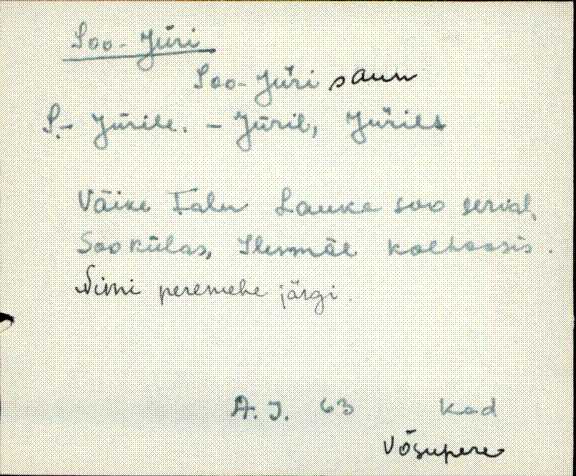 Soo-Jüri
Soo-Jüri saun
S.- Jürile. - Jüril, Jürilt
Väike Talu Lauka soo serval,
Sookülas, Ilumäe kolhoosis.
Nimi peremehe järgi.
A. J. 63 Kad
Võsupere